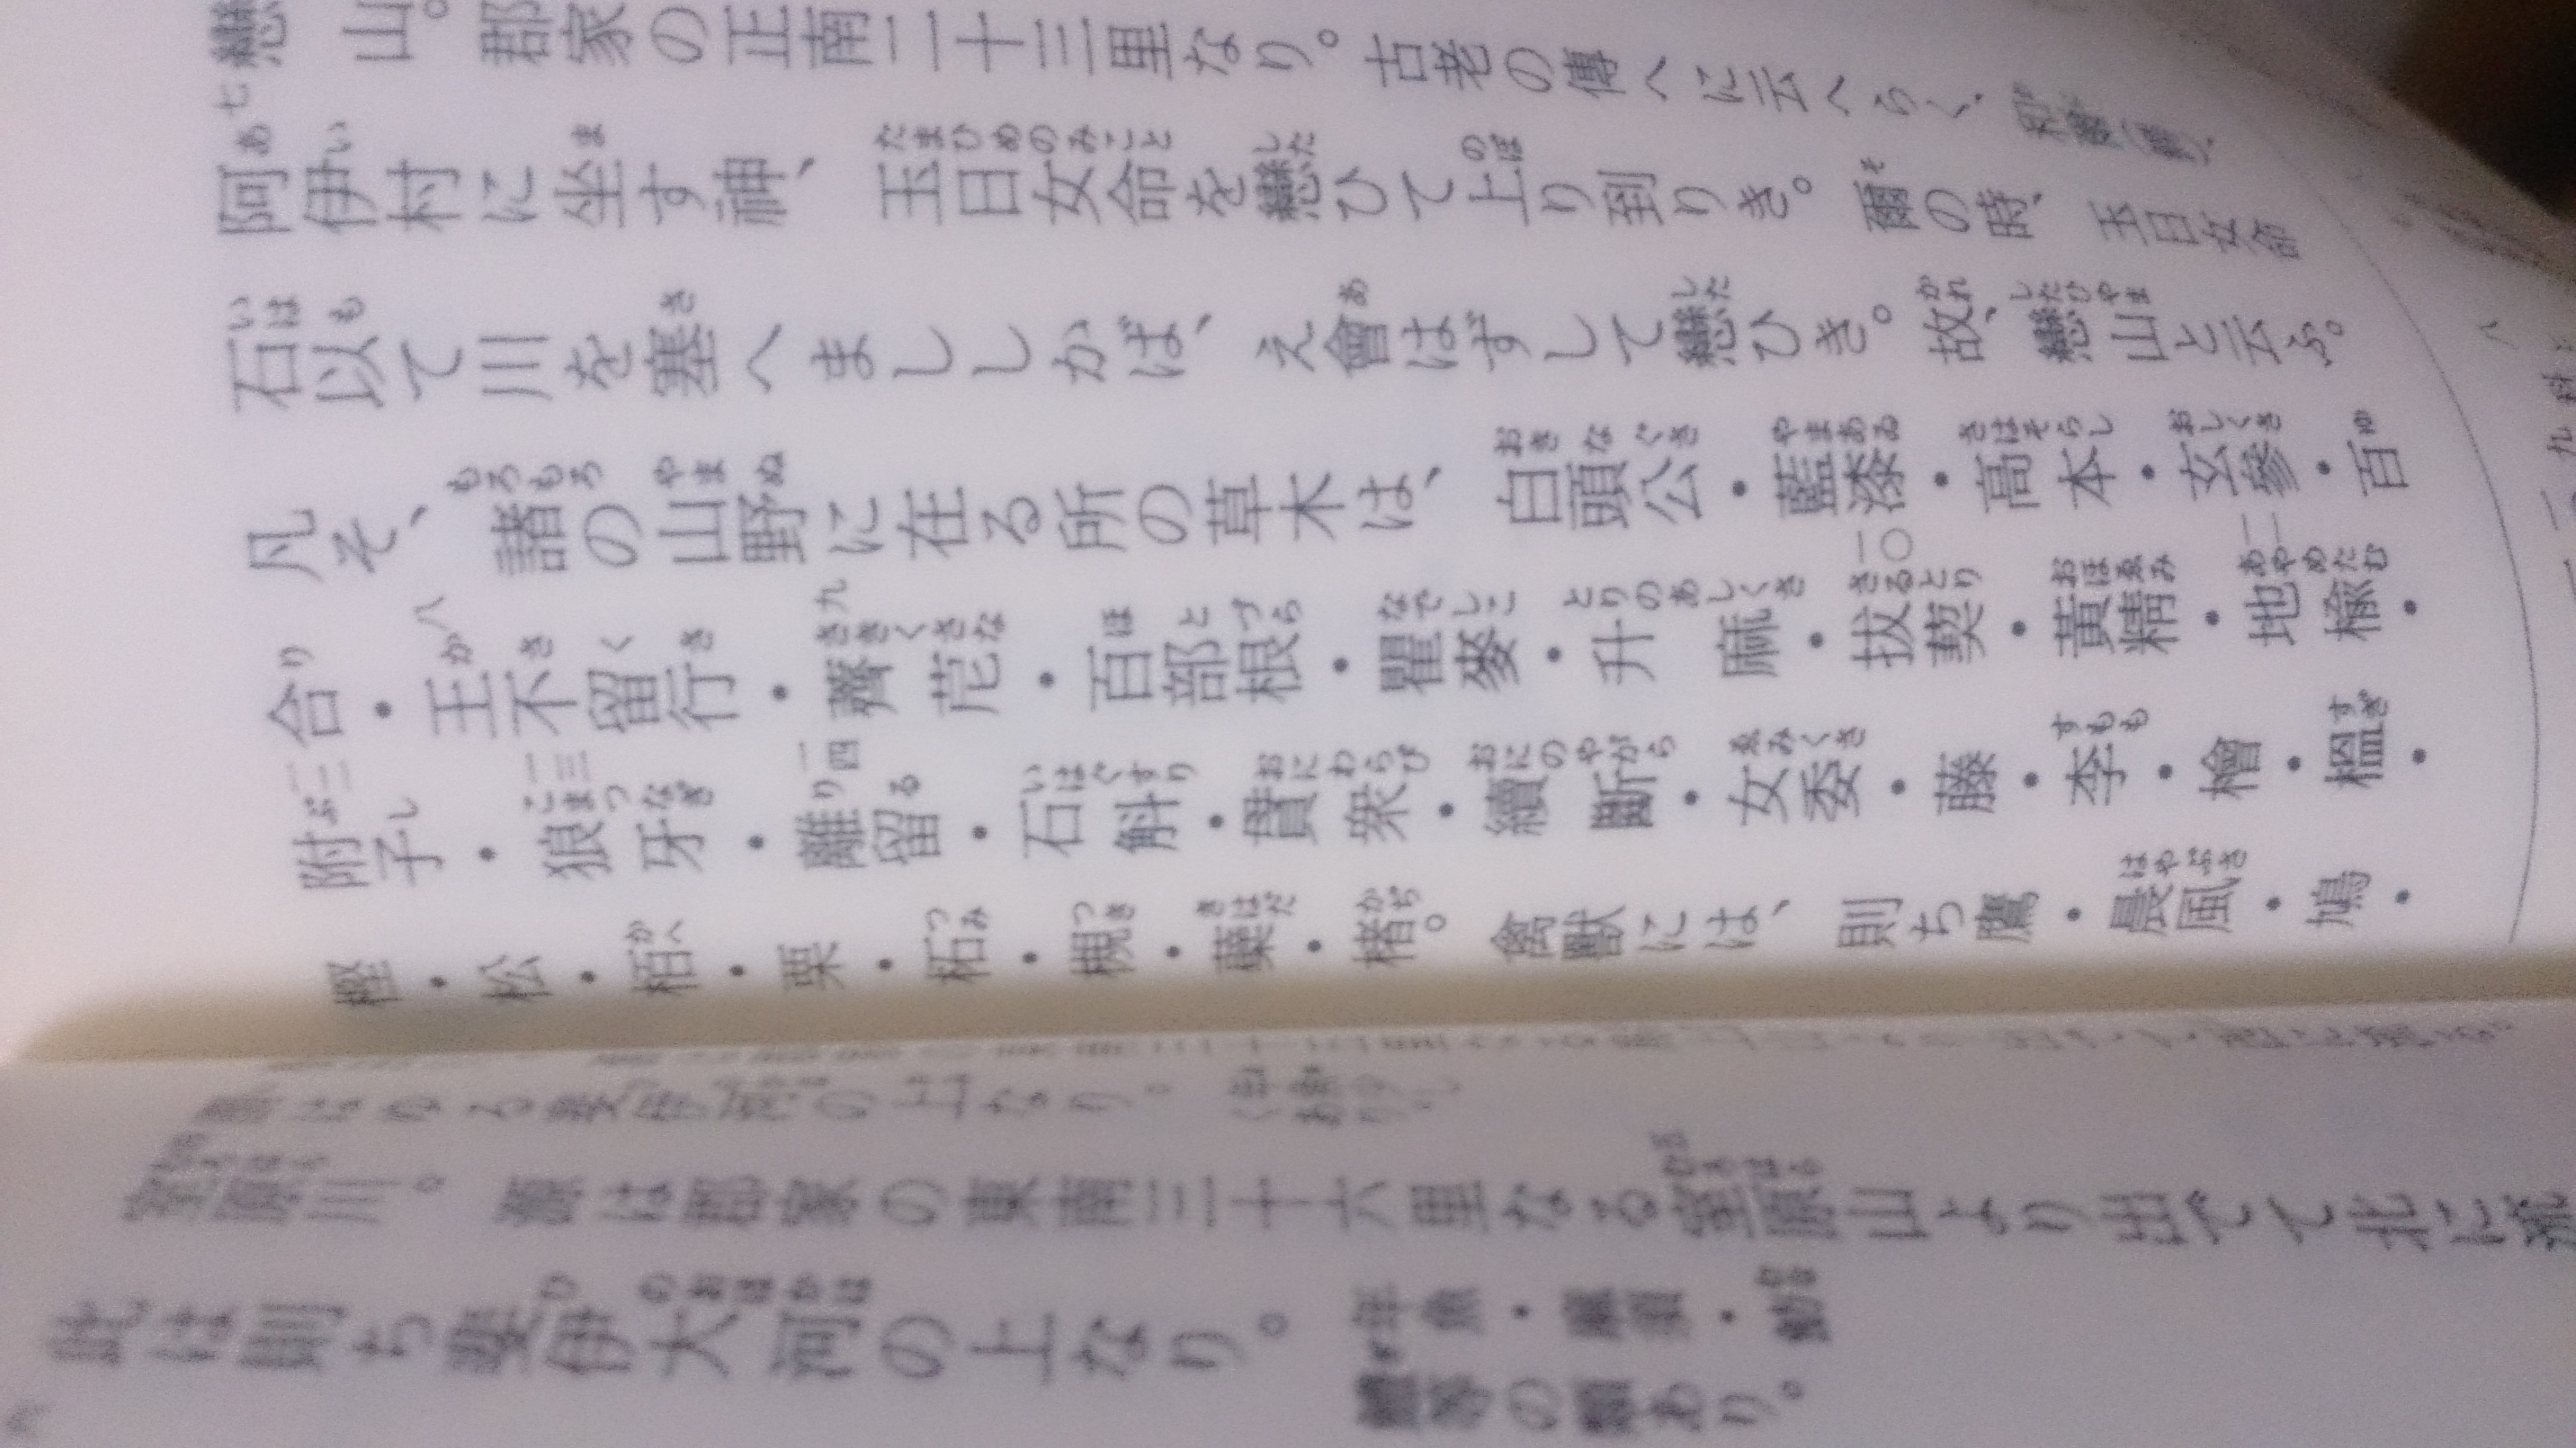 戀山。郡家の正南二十三里なり。古老の傳へに云へらく、和爾、
阿伊村に坐す神、玉日女命を戀ひて上り到りき。爾の時、玉日女命
石以て川を塞へまししかば、え會はずして戀ひき。故、戀山と云ふ。
凡そ、諸の山野に在る所の草木は、白頭公・藍漆・高本・玄參・百
合・王不留行・薺苨・百部根・瞿麥・升麻・拔葜・黃精・地楡・
附子・狼牙・離留・石斛・貫衆・續斷・女委・藤・李・檜・榲・
樫・松・栢・栗・柘・槻・蘗・楮。禽獸には、則ち鷹・晨風・鳩・
の上なり。
室原川。源は郡家の東南三十六里なる室原山より出でて北に流
此は則ち斐伊大河の上なり。年魚・麻須・
等の類あり。